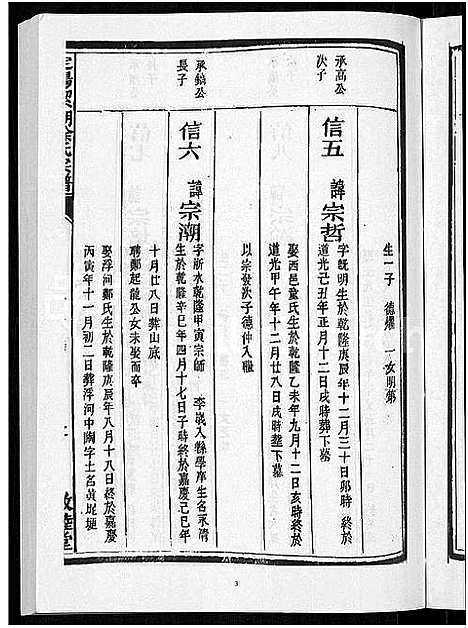 生一子 德燿 一女明第
承高公
次子
信五 諱宗哲
字旣明生於乾隆庚辰年十二月三十日卯時終於
道光己丑年正月十二日戌時葬下墓
娶西邑童氏生於乾隆乙未年九月十二日亥時終於
道光甲午年十二月廿八日戌時塟下墓
以宗發次子德仲入繼
承鎡公
長子
信六 諱宗潮
字浙水乾隆甲寅宗師 李 入縣學庠生名永清
生於乾隆辛巳年四月十七日子時終於嘉慶己巳年
十月廿八日葬山底
聘鄭起龍公女未娶而卒
娶浮河鄭氏生於乾隆庚辰年八月十八日終於嘉慶
丙寅年十一月初二日葬浮河中陶字土名黃坭埂
敦睦堂
3